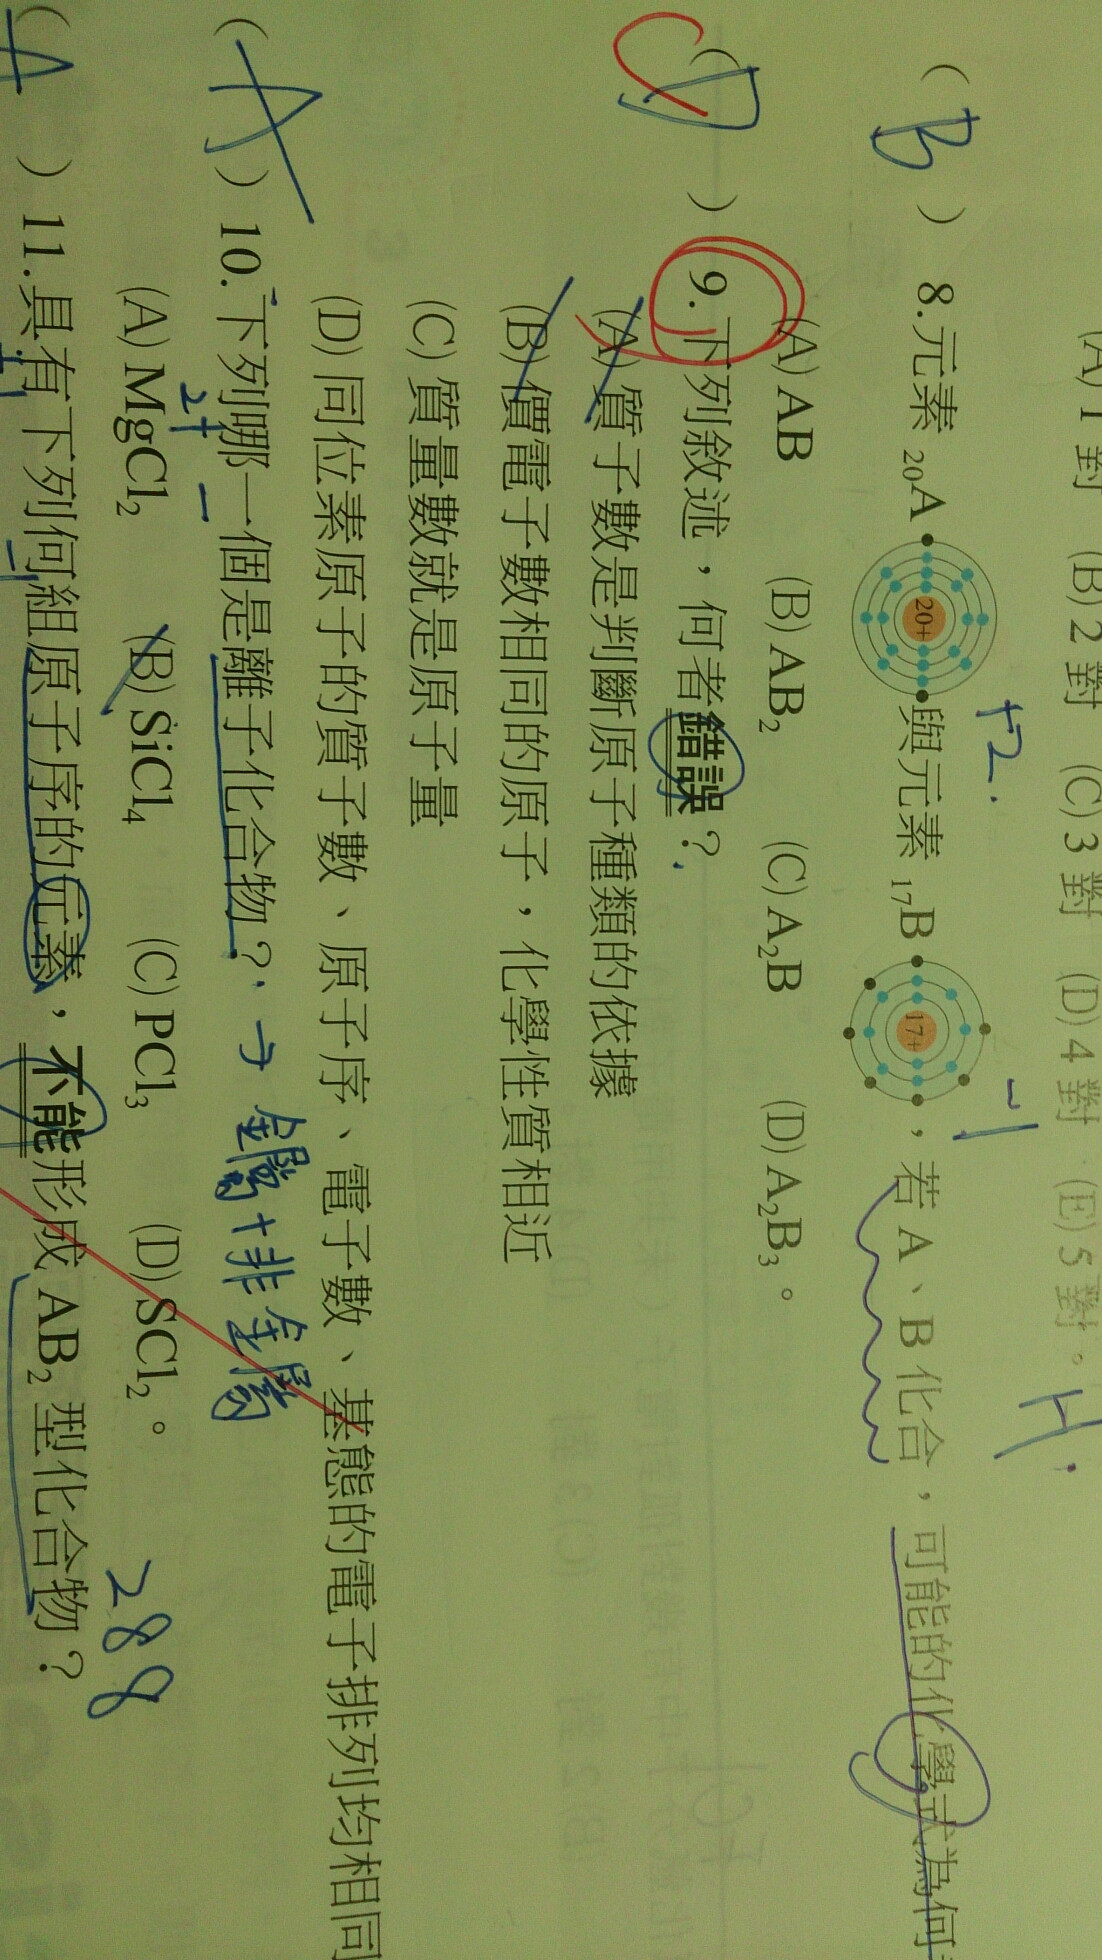 (A) 1對 (B) 2對 (C) 3對 (D) 4對 (E) 5對。
H.
+2. -1
( B ) 8.元素 ₂₀A 20+ 與元素 ₁₇B 17+ ，若 A、B 化合，可能的化學式為何
(A) AB (B) AB₂ (C) A₂B (D) A₂B₃。
( C D ) 9.下列敘述，何者錯誤？
(A) 質子數是判斷原子種類的依據
(B) 價電子數相同的原子，化學性質相近
(C) 質量數就是原子量
(D) 同位素原子的質子數、原子序、電子數、基態的電子排列均相同
( A ) 10.下列哪一個是離子化合物？→ 金屬+非金屬
2+ -
(A) MgCl₂ (B) SiCl₄ (C) PCl₃ (D) SCl₂。
288
( A ) 11.具有下列何組原子序的元素，不能形成 AB₂ 型化合物？